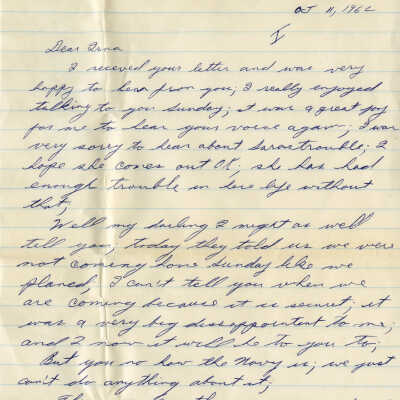 Oct 11, 1962
I
Dear Irna
I receved your letter and was very
happy to hear from you; I really enjoyed
talking to you Sunday; it was a great joy
for me to hear your voice again; I was
very sorry to hear about Saras trouble; I
hope she comes out O.K, she has had
enough trouble in her life without
that;
Well my darling I might as well
tell you, today they told us we were
not coming home Sunday like we
planed, I can't tell you when we
are coming because it is secret; it
was a very big disseppointent to me;
and I now it will be to you to;
But you no how the Navy is; we just
can't do anything about it;